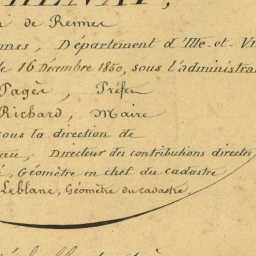 de Rennes
Département d'Ille-et-Vi
le 16 Décembre 1850, sous l'administra
Pages, Préfet
Richard, Maire
sous la direction de
Directeur des contributions directes
Géomètre en chef du cadastre
Leblanc, Géomètre du cadastre